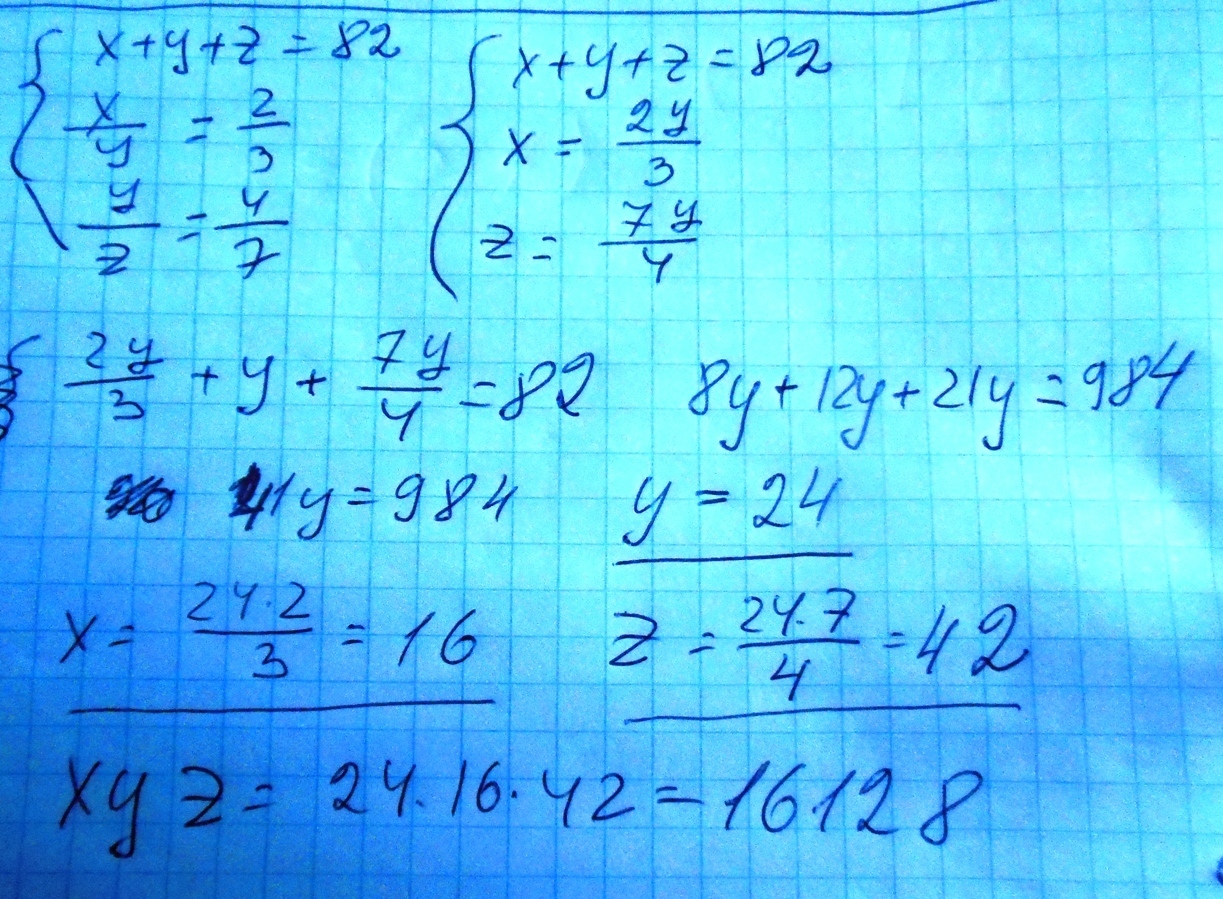 x+y+z=82
x/y = 2/3
y/z = 4/7
x+y+z=82
x = 2y/3
z = 7y/4
2y/3 + y + 7y/4 = 82 8y+12y+21y=984
41y=984 y=24
x = 24·2/3 = 16 z = 24·7/4 = 42
xyz = 24·16·42 = 16128